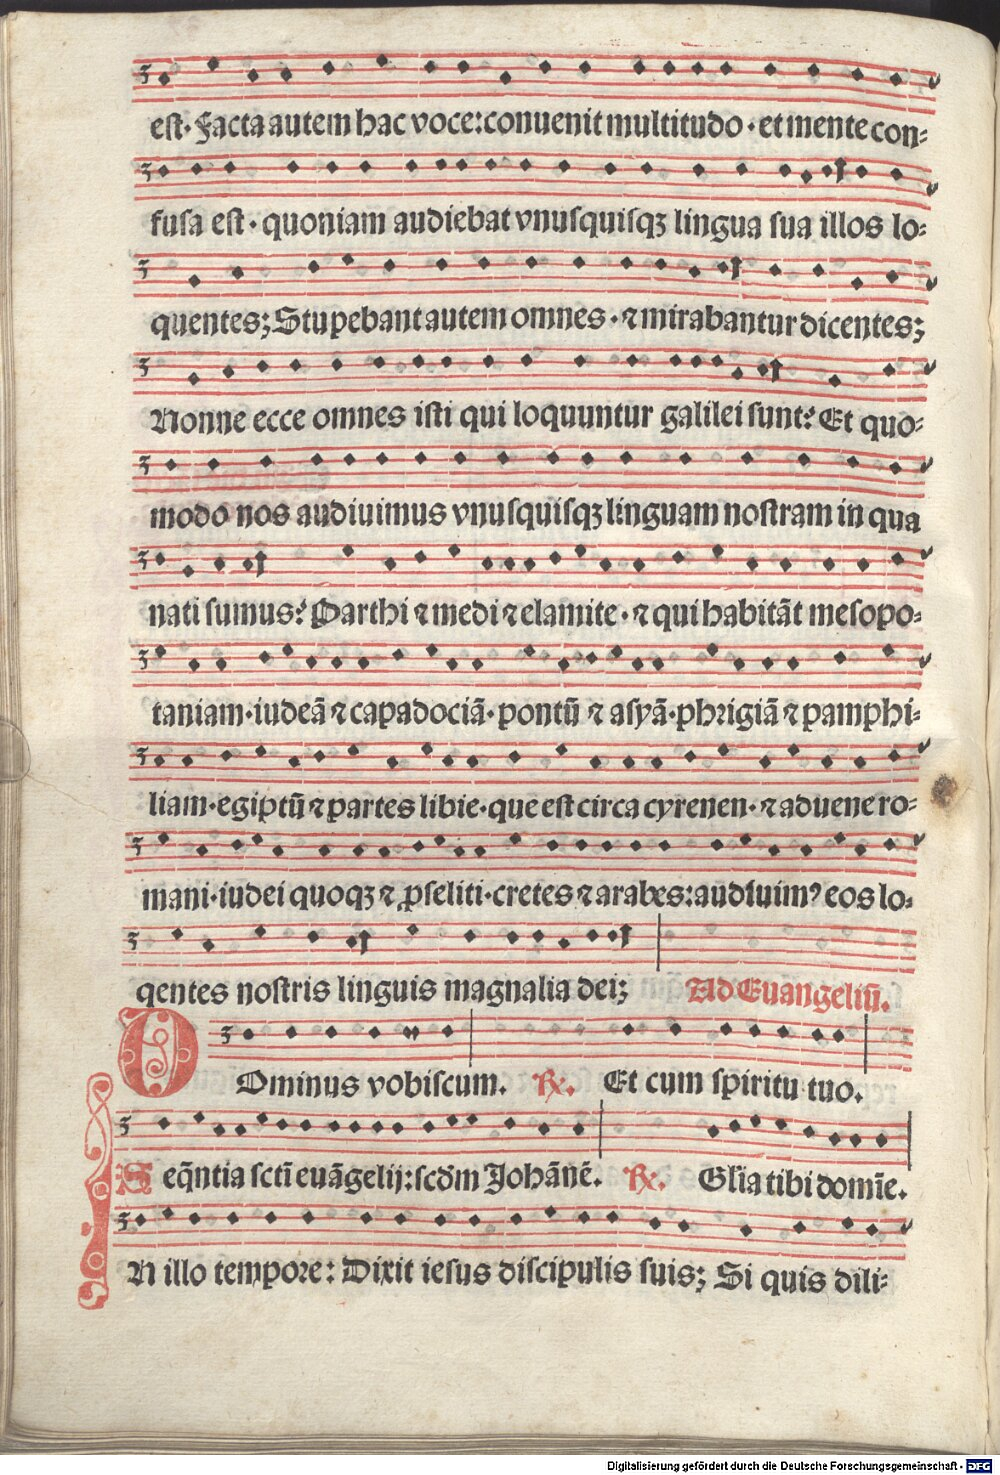 est· Facta autem hac voce: conuenit multitudo · et mente con=
fusa est · quoniam audiebat vnusquisqꝫ lingua sua illos lo=
quentes; Stupebant autem omnes · ⁊ mirabantur dicentes;
Nonne ecce omnes isti qui loquuntur galilei sunt? Et quo=
modo nos audiuimus vnusquisqꝫ linguam nostram in qua
nati sumus? Parthi ⁊ medi ⁊ elamite · ⁊ qui habitãt mesopo=
taniam · iudeã ⁊ capadociã · pontũ ⁊ asyã · phrigiã ⁊ pamphi=
liam · egiptũ ⁊ partes libie · que est circa cyrenen · ⁊ aduene ro=
mani · iudei quoqꝫ ⁊ ꝓseliti · cretes ⁊ arabes: audiuimꝰ eos lo=
qentes nostris linguis magnalia dei; Ad Euangeliũ.
DOminus vobiscum. ℟. Et cum spiritu tuo.
Seq̃ntia scti euãgelij: scd̃m Johãnẽ. ℟. Glia tibi domĩe.
IN illo tempore: Dixit iesus discipulis suis; Si quis dili=
Digitalisierung gefördert durch die Deutsche Forschungsgemeinschaft - DFG